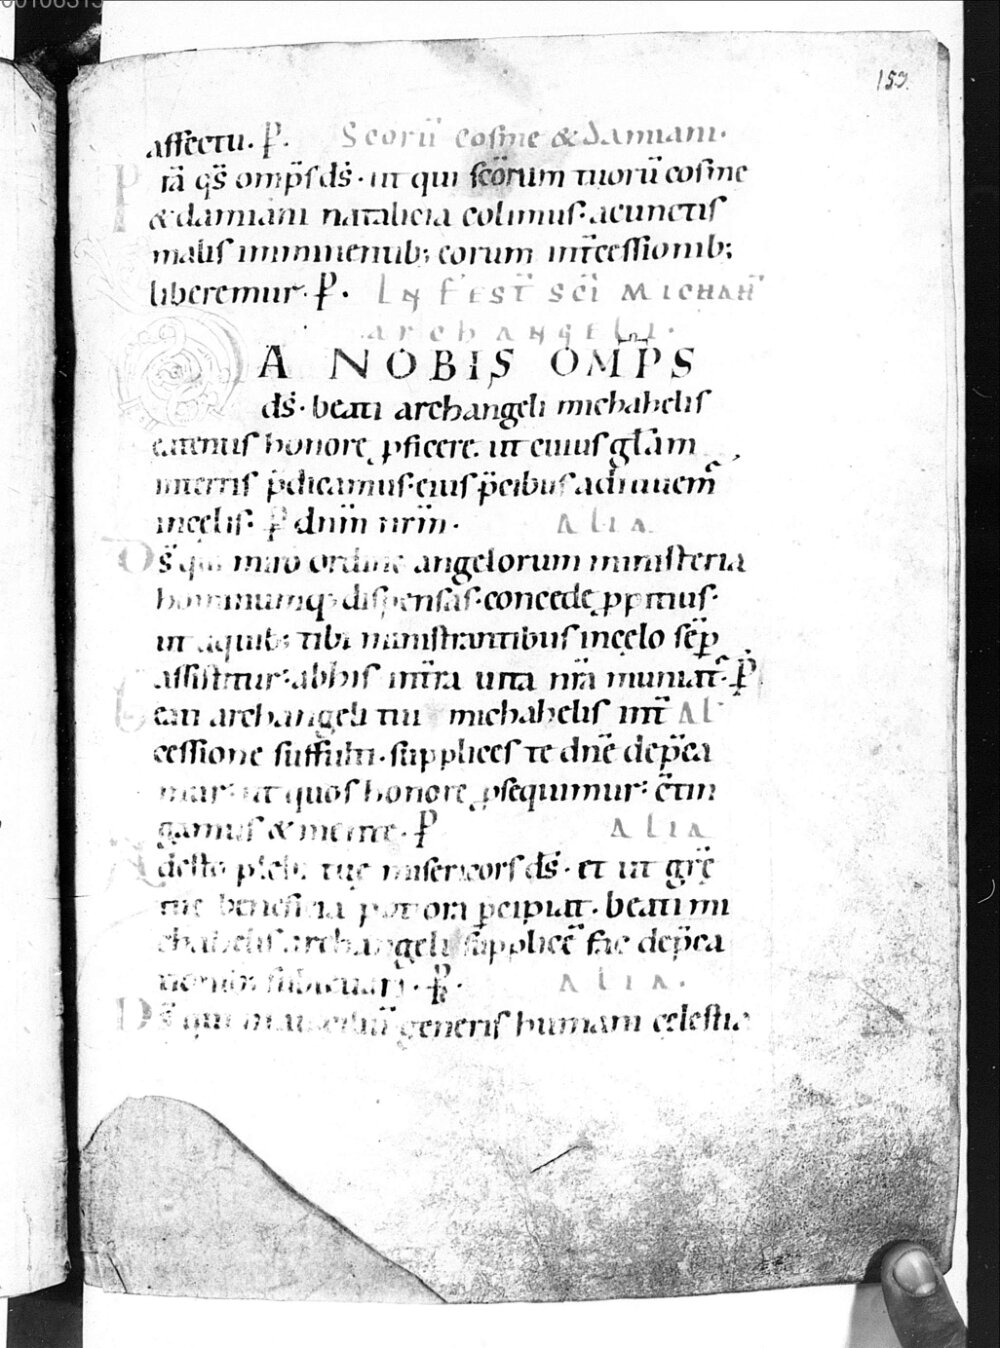 153.
affectu. P. Scorū cosme & damiani.
P rā qs̄ omp̄s ds̄. ut qui scōrum tuorū cosme
& damiani natalicia colimus. acunctis
malis imminentib; eorum int̄cessionib;
liberemur. P. IN FEST SCI MICHAH
archANgELI.
DA NOBIS OMP̄S
ds̄. beati archangeli michahelis
eatenus honorę pficere. ut cuius gl̄am
interris p̄dicamus. eius p̄cibus adiuuem̄
incęlis. P dnm̄ nrm̄. ALIA
Ds̄ qui miro ordine angelorum ministeria
hominumq; dispensas. concede ppitius.
ut aquib; tibi ministrantibus incęlo sēp
assistitur. abhis int̄ra uita nr̄a muniat̄. P
Beati archangeli tui michahelis int̄ AL
cessione suffulti. supplices te dnē dep̄ca
mur. ut quos honorę psequimur. c̄tin
gamus & mente. P ALIA
Adesto plebi tuę misericors ds̄. et ut grę̄
tuę beneficia potiora p̄cipiat. beati mi
chahelis archangeli supplicē fac dep̄ca
tionib; subleuari. P. ALIA.
Ds̄ qui generis humani cęlestia